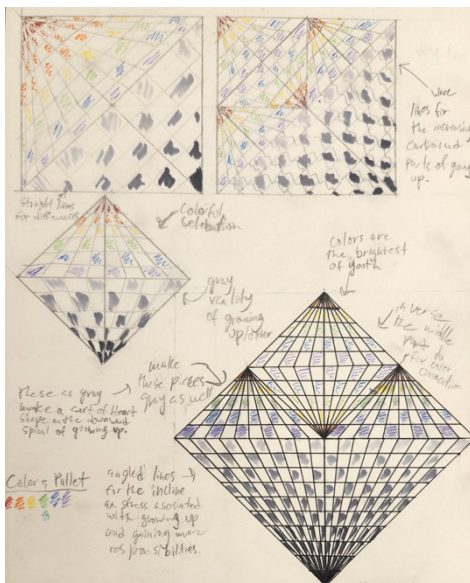 wave
lines for
the increasing
parts of growing
up.
Straight lines
for differences
Colorful
Celebration
gray
reality
of growing
up/older
colors are
the brightest
of youth
inverse
the middle
part to
for color
connection
make
these pieces
gray as well
these as gray
make a sort of heart
shape in the downward
spiral of growing up.
Colors Pallet
angled lines
for the incline
in stress asociated
with growing up
and gaining more
responsibilities.